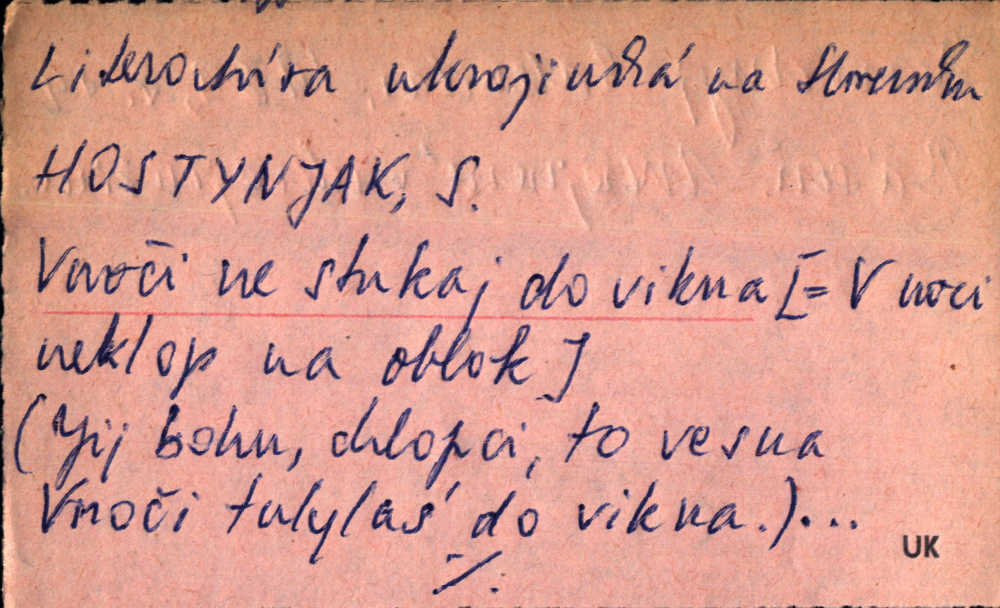 Literatúra ukrajinská na Slovensku
HOSTYNJAK, S.
Vnoči ne stukaj do vikna [= V noci
neklop na oblok]
(Jij bohu, chlopci, to vesna
Vnoči tulylaś do vikna.)...
./.
UK